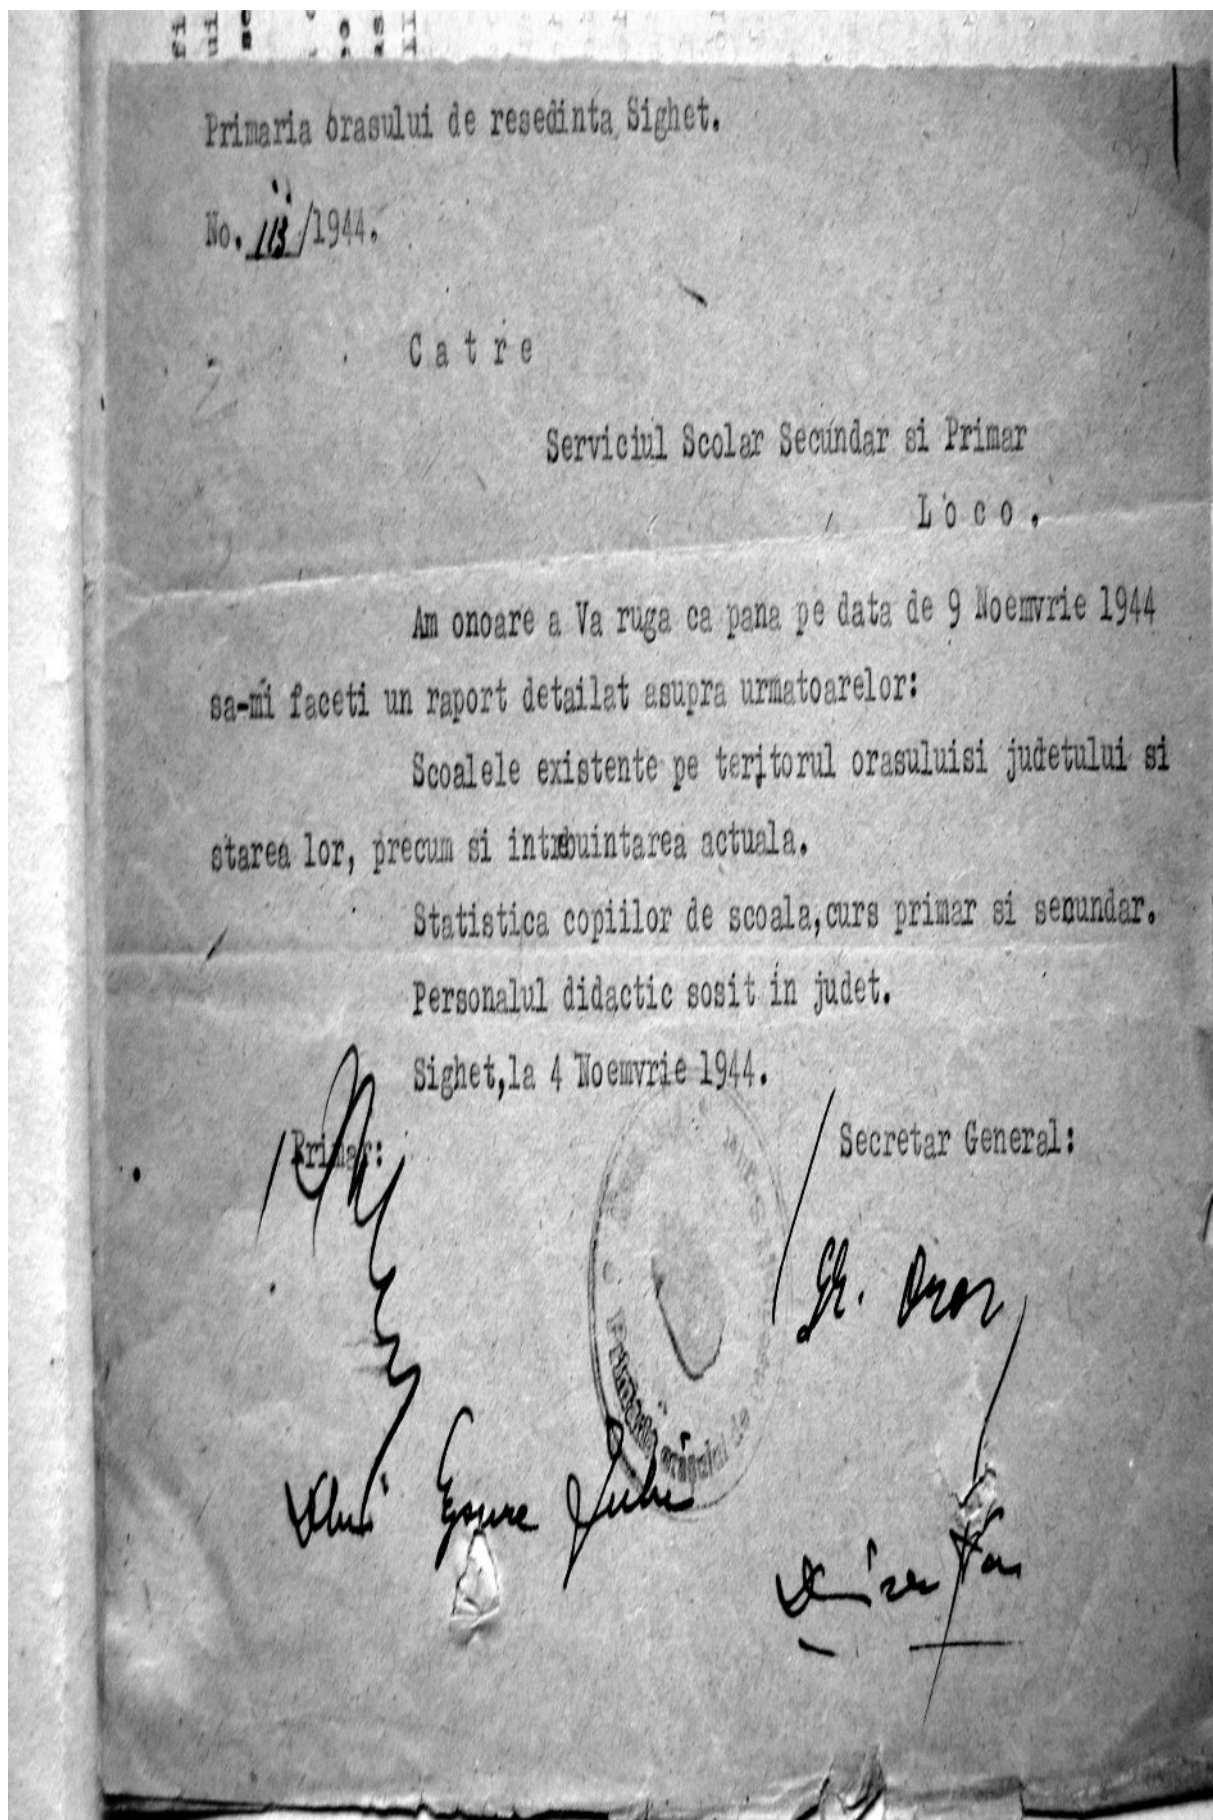 Primaria orasului de resedinta Sighet.
No. 113/1944.
Catre
Serviciul Scolar Secundar si Primar
Loco.
Am onoare a Va ruga ca pana pe data de 9 Noemvrie 1944
sa-mi faceti un raport detailat asupra urmatoarelor:
Scoalele existente pe teritorul orasuluisi judetului si
starea lor, precum si intrebuintarea actuala.
Statistica copiilor de scoala,curs primar si secundar.
Personalul didactic sosit in judet.
Sighet,la 4 Noemvrie 1944.
Primar:
Secretar General:
Primăria orașului de